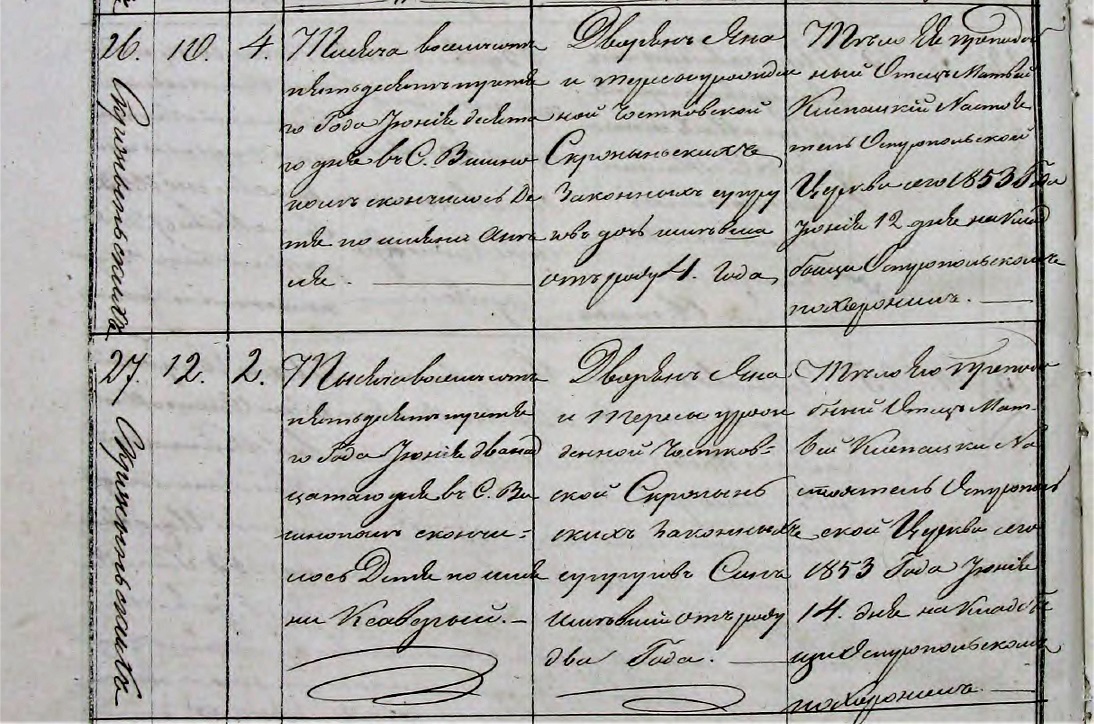 26.
Скропыньскихъ
10.
4.
Тысяча восемьсотъ
пятьдесятъ третья
го Года Іюнія десята
го дня въ С. Вишно
полѣ скончилось Де
тя по имени Анто
ля.
Дворянъ Яна
и Тересы урожден
ной Чостковской
Скропыньскихъ
Законныхъ супру
овъ дочь имѣвша
отъ роду 4. Года,
Тѣло Ея преподоб
ный Отецъ Матвѣй
Кмпацкій Настоя
тель Остропольской
Церкви сего 1853 Года
Іюнія 12 дня на Клад
бищи Остропольскомъ
похоронилъ.
27.
Скропыньскихъ
12.
2.
Тысяча восемьсотъ
пятьдесятъ третья
го Года Іюнія дванад
цатаго дня въ С. Ви
шнополѣ скончи=
лось Детя по име
ни Ксаверый.
Дворянъ Яна
и Тересы урож
денной Чостков=
ской Скропынь
скихъ Законныхъ
супруговъ Сынъ
имѣвшій отъ роду
два Года.
Тѣло Его Преподо
бный Отецъ Мат-
вѣй На
стоятель Острополь
ской Церкви сего
1853 Года Іюнія
14. дня на Кладби
щи Остропольскомъ
похоронилъ.